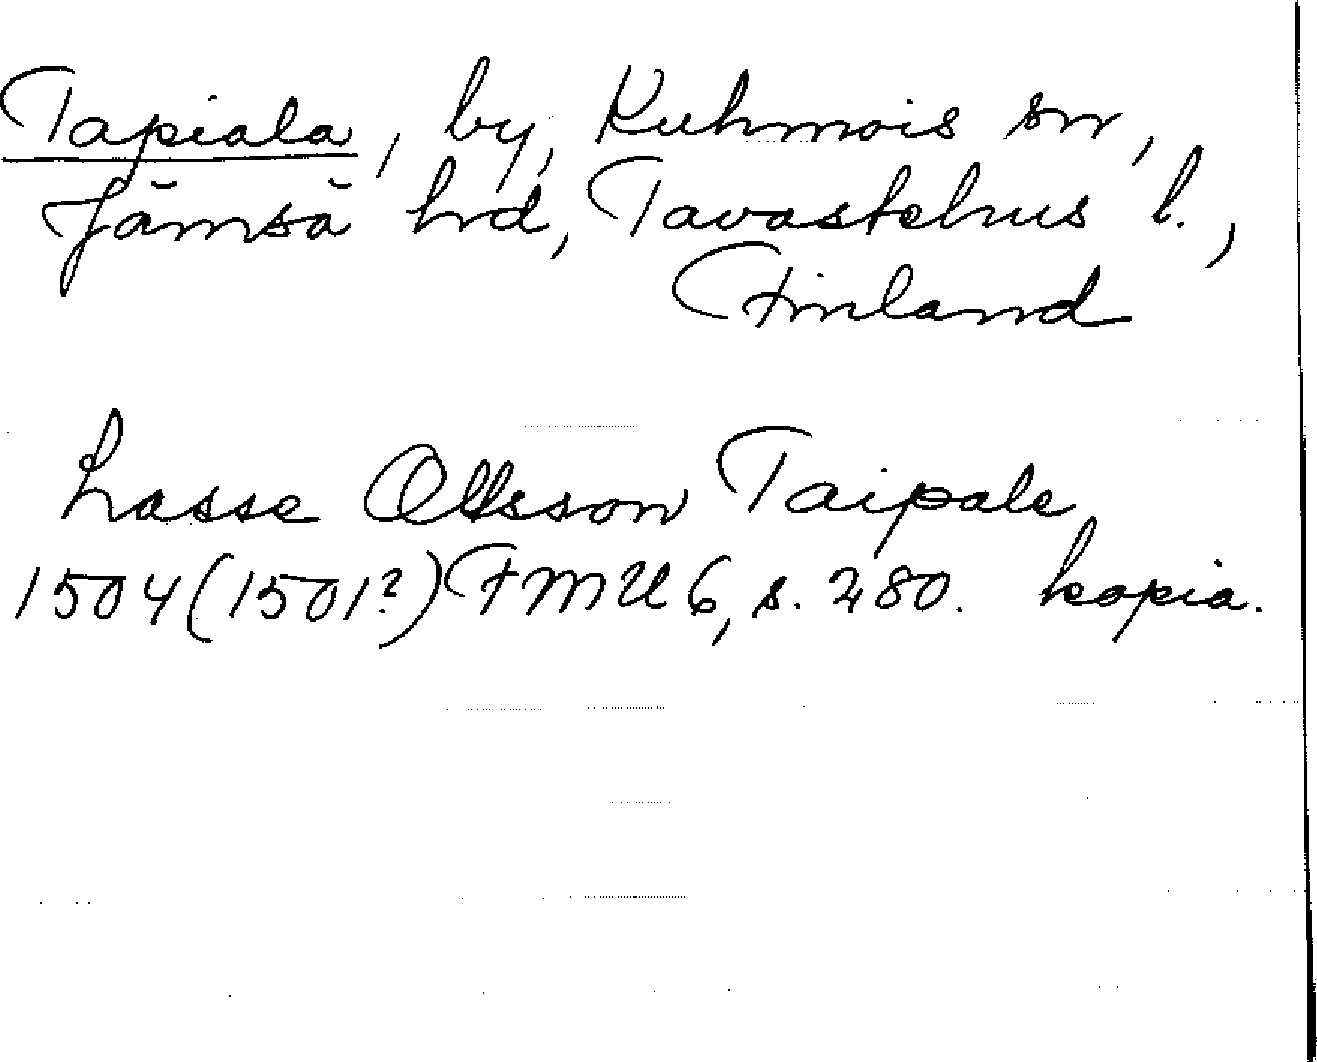 Tapiala, by, Kuhmois sn,
Jämsä hd, Tavastehus l.,
Finland
Lasse Olsson Taipale,
1504 (1501?) FMU 6, s. 280. kopia.